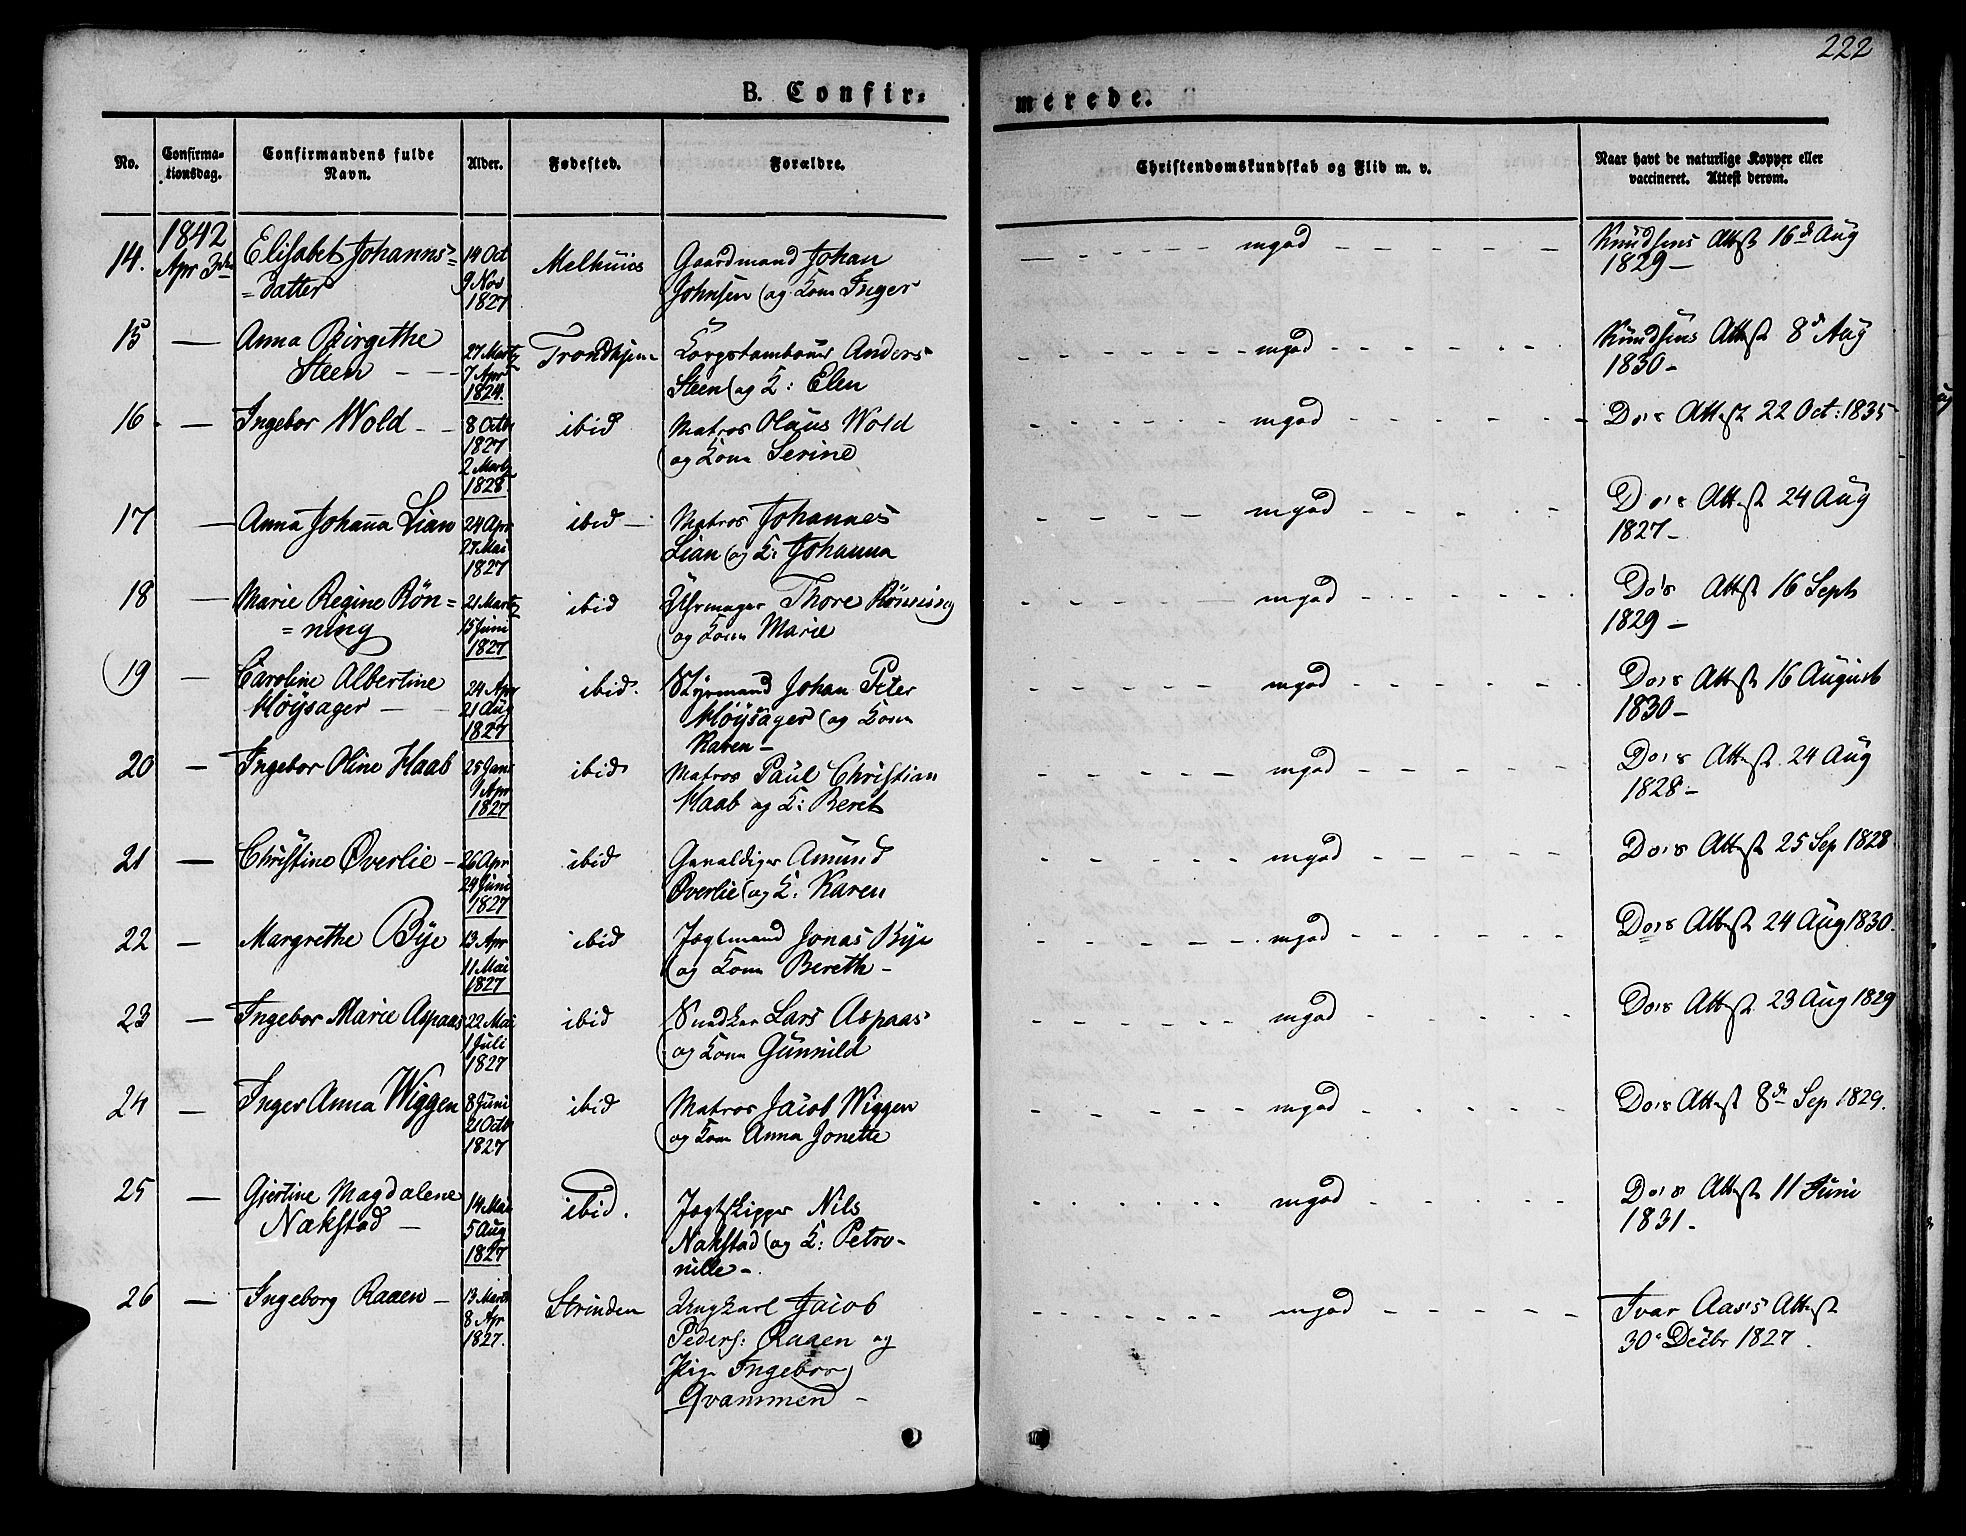 222
B. Confir=
merede.
No.
Confirma=
tionsdag.
Confirmandens fulde
Navn.
Alder.
Fødested.
Forældre.
Christendomskundskab og Flid m. v.
Naar havt de naturlige Kopper eller
vaccineret. Attest derom.
1842
14. Apr 3die Elisabet Johanns=
=datter
14 Oct
9 Nov
1827
Melhuus
Gaardmand Johan
Johnsen og Kone Inger
mgod
Knudsens Attest 16de Aug
1829 -
15 — Anna Birgithe
Steen
27 Marts
7 Apr
1824.
Trondhjem
Korpstambour Anders
Steen og K: Elen
mgod
Knudsens Attest 8de Aug
1830 -
16 — Ingebor Wold
8 Octb
1827
2 Marts
1828
ibid
Matros Olaus Wold
og Kone Serine
mgod
Do's Attest 22 Oct: 1835
17 — Anna Johanna Lian
24 Apr
27 Mai
1827
ibid
Matros Johannes
Lian og K: Johanna
mgod
Do's Attest 24 Aug
1827 -
18 — Marie Regine Røn=
=ning
21 Marts
15 Juni
1827
ibid
Uhrmager Thore Rønning
og Kone Marie
mgod
Do's Attest 16 Sept
1829 -
19 — Caroline Albertine
Høysager
24 Apr
21 Aug
1827
ibid.
Styrmand Johan Peter
Høysager og Kone
Karen -
mgod
Do's Attest 16 August
1830 -
20 — Ingebor Oline Haab
25 Jan
1 Apr
1827
ibid
Matros Paul Christian
Haab og K: Beret
mgod
Do's Attest 24 Aug
1828 -
21 — Christine Øverlie
26 Apr
24 Juni
1827
ibid
Gevaldiger Amund
Øverlie og K: Karen
mgod
Do's Attest 25 Sep 1828
22 — Margrethe Bye
13 Apr
11 Mai
1827
ibid
Jagtmand Jonas Bye
og Kone Bereth -
mgod
Do's Attest 24 Aug 1830.
23 — Ingebor Marie Aspaas
22 Mai
1 Juli
1827
ibid
Snedker Lars Aspaas
og Kone Gunnild
mgod
Do's Attest 23 Aug 1829
24 — Inger Anna Wiggen
8 Juni
21 Octb
1827
ibid
Matros Jacob Wiggen
og Kone Anna Jonette
mgod
Do's Attest 8de Sep 1829.
25 — Gjertine Magdalene
Nakstad -
14 Mai
5 Aug
1827
ibid.
Jagtskipper Nils
Nakstad og K: Petro-
nille -
mgod
Do's Attest 11 Juni
1831 -
26 — Ingeborg Raaen -
13 Marts
8 Apr
1827.
Strinden
Ungkarl Jacob
Peders: Raaen og
Pige Ingeborg
Qvammen -
mgod
Ivar Aas's Attest
30 Decbr 1827.